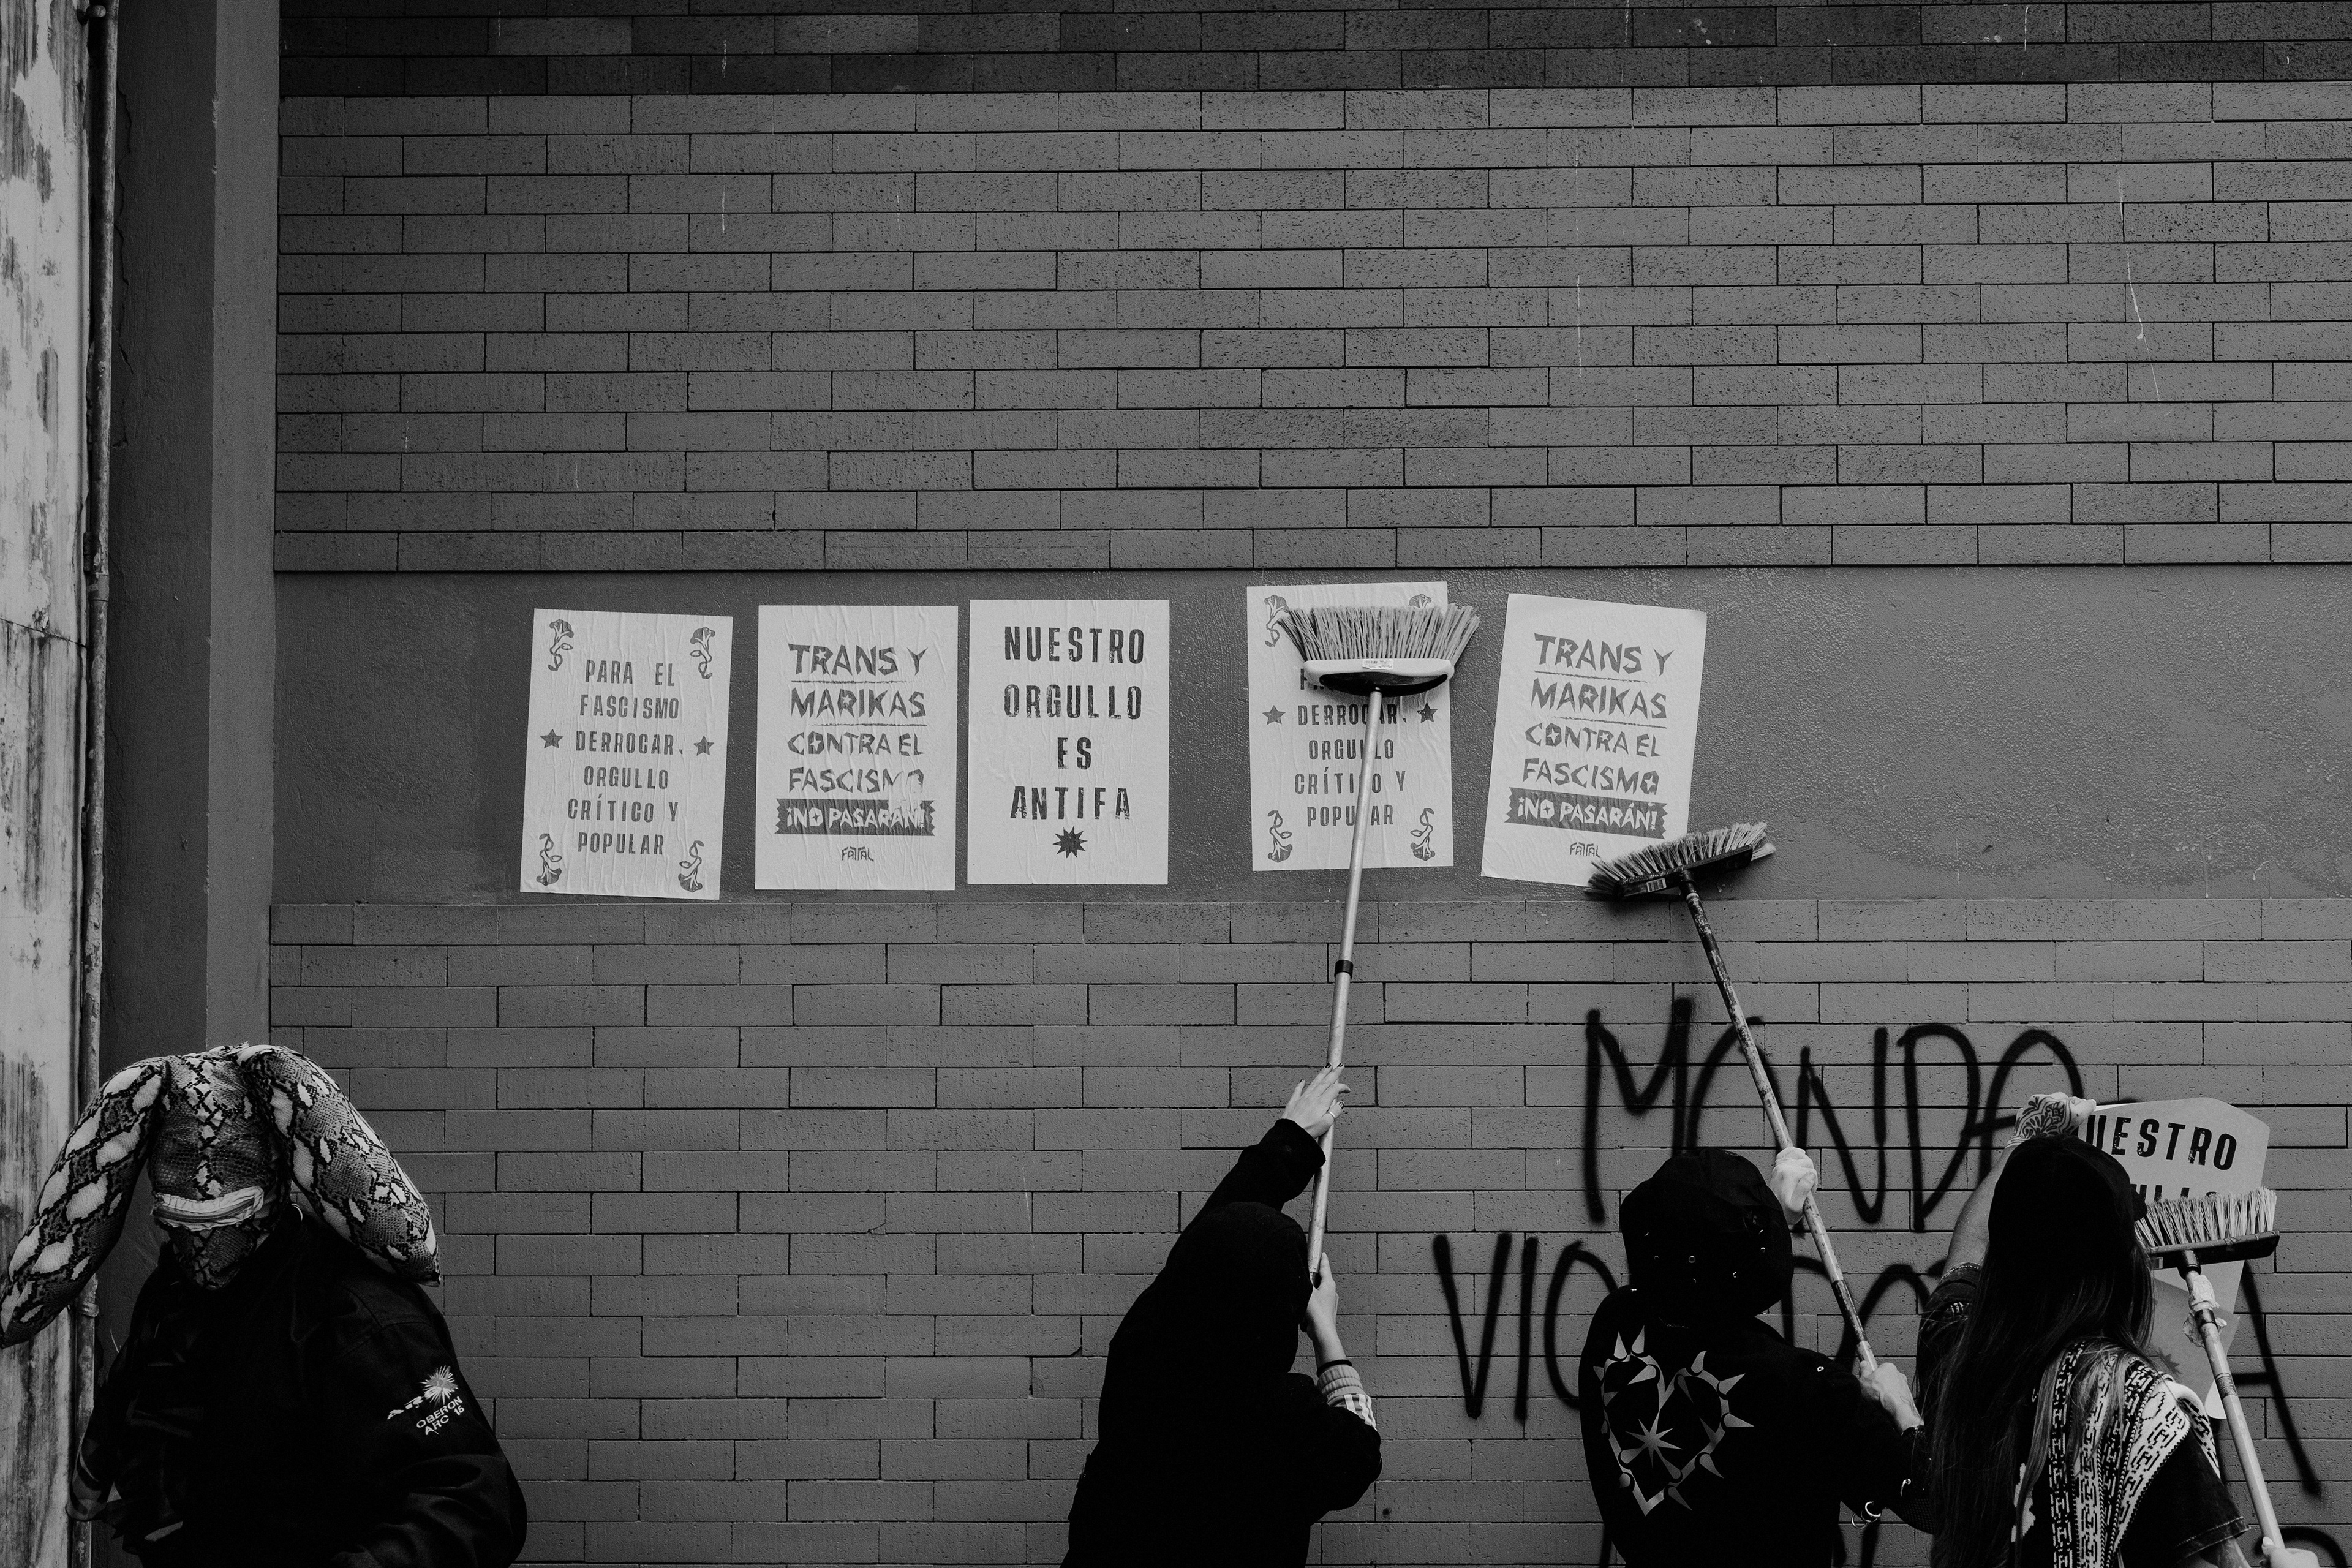 PARA EL
FASCISMO
DERROCAR,
ORGULLO
CRÍTICO Y
POPULAR
TRANS Y
MARIKAS
CONTRA EL
FASCISMO
¡NO PASARÁN!
FATAL
NUESTRO
ORGULLO
ES
ANTIFA
DERROCAR,
ORGULLO
CRÍTICO Y
POPULAR
TRANS Y
MARIKAS
CONTRA EL
FASCISMO
¡NO PASARÁN!
FATAL
OBERON
ARC 15